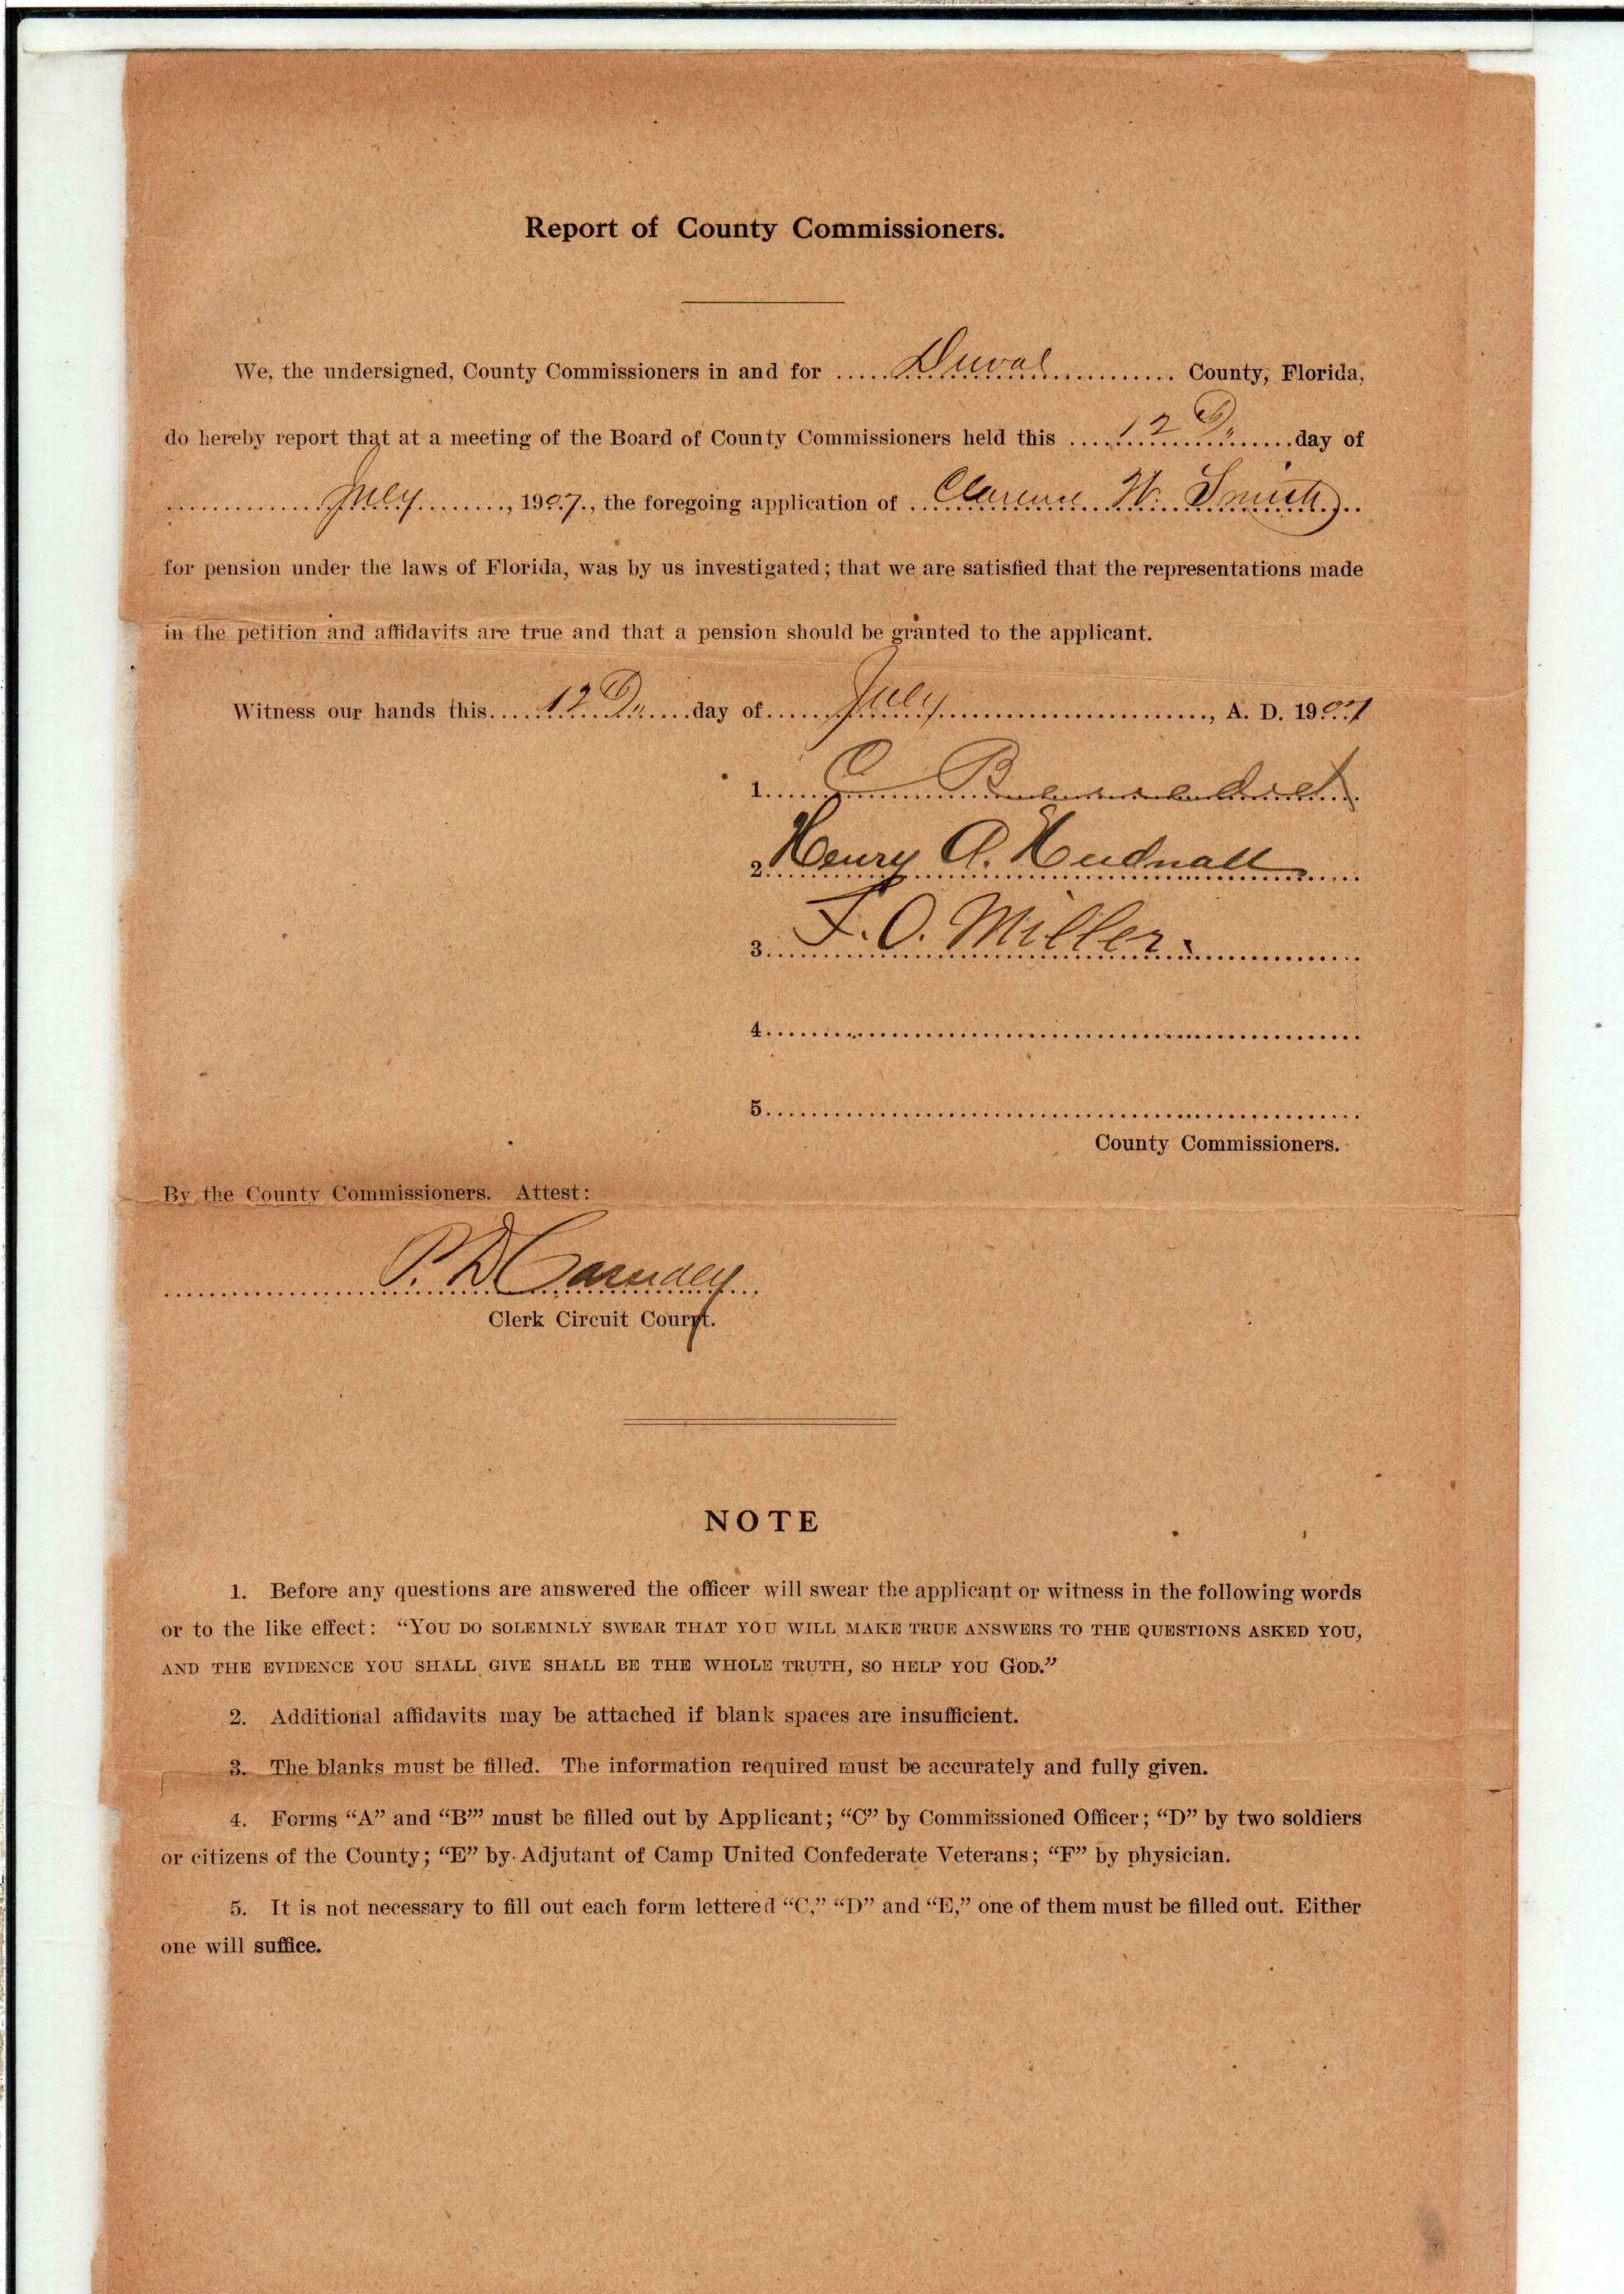 Report of County Commissioners.
We, the undersigned, County Commissioners in and for ..... Duval ............ County, Florida,
do hereby report that at a meeting of the Board of County Commissioners held this .... 12 ...... day of
............ July ........, 1907., the foregoing application of .. Clarence W. Smith ..
for pension under the laws of Florida, was by us investigated; that we are satisfied that the representations made
in the petition and affidavits are true and that a pension should be granted to the applicant.
Witness our hands this.... 12 .....day of...... July ........................, A. D. 1907
1.....
2. Henry A. Hudnall
3. F. O. Miller
4.....
5.....
County Commissioners.
By the County Commissioners. Attest:
P. D. Cassidey
Clerk Circuit Courrt.
NOTE
1. Before any questions are answered the officer will swear the applicant or witness in the following words
or to the like effect: “YOU DO SOLEMNLY SWEAR THAT YOU WILL MAKE TRUE ANSWERS TO THE QUESTIONS ASKED YOU,
AND THE EVIDENCE YOU SHALL GIVE SHALL BE THE WHOLE TRUTH, SO HELP YOU GOD.”
2. Additional affidavits may be attached if blank spaces are insufficient.
3. The blanks must be filled. The information required must be accurately and fully given.
4. Forms “A” and “B”’ must be filled out by Applicant; “C” by Commissioned Officer; “D” by two soldiers
or citizens of the County; “E” by Adjutant of Camp United Confederate Veterans; “F” by physician.
5. It is not necessary to fill out each form lettered “C,” “D” and “E,” one of them must be filled out. Either
one will suffice.